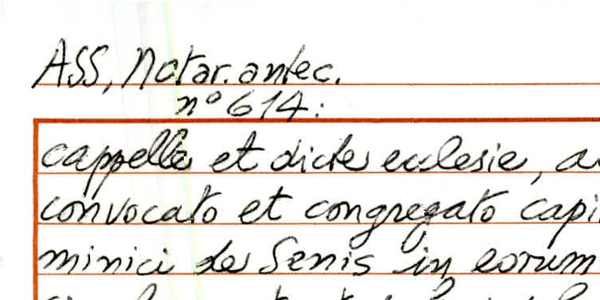 ASS, Notar. antec.
nº 614:
cappelle et dicte ecclesie,
convocato et congregato
minici de Senis in eorum